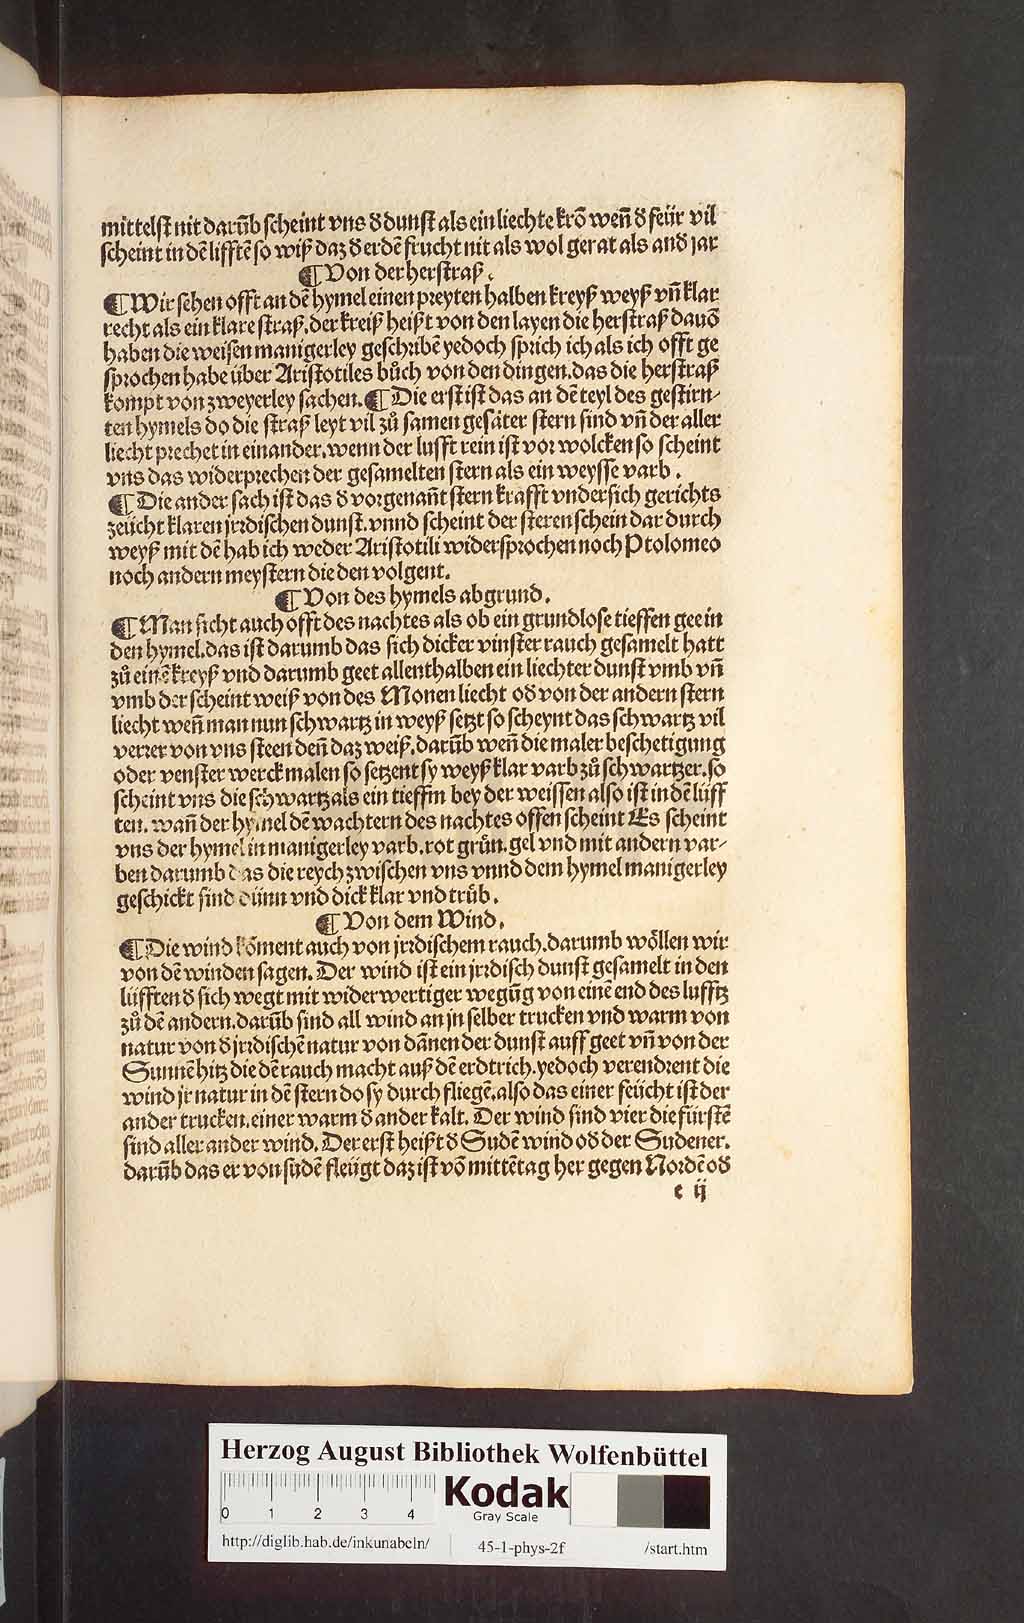 mittelst nit darūb scheint vns d̕ dunst als ein liechte krō wen̄ d̕ feür vil
scheint in dē lifftē so wiß daz d̕ erdē frucht nit als wol gerat als and̕ jar
¶ Von der herstraß.
¶ Wir sehen offt an dē hymel einen preyten halben kreyß weyß vn̄ klar
recht als ein klare straß. der kreiß heißt von den layen die herstraß dauō
haben die weisen manigerley geschribē yedoch sprich ich als ich offt ge
sprochen habe über Aristotiles bůch von den dingen. das die herstraß
kompt von zweyerley sachen. ¶ Die erst ist das an dē teyl des gestirn⸗
ten hymels do die straß leyt vil zů samen gesäter stern sind vn̄ der aller
liecht prechet in einander. wenn der lufft rein ist vor wolcken so scheint
vns das widerprechen der gesamelten stern als ein weysse varb.
¶ Die ander sach ist das d̕ vorgenan̄t stern krafft vnder sich gerichts
zeücht klaren jrrdischen dunst. vnnd scheint der steren schein dar durch
weyß mit dē hab ich weder Aristotili widersprochen noch Ptolomeo
noch andern meystern die den volgent.
¶ Von des hymels abgrund.
¶ Man sicht auch offt des nachtes als ob ein grundlose tieffen gee in
den hymel. das ist darumb das sich dicker vinster rauch gesamelt hatt
zů einē kreyß vnd darumb geet allenthalben ein liechter dunst vmb vn̄
vmb der scheint weiß von des Monen liecht od̕ von der andern stern
liecht wen̄ man nun schwartz in weyß setzt so scheynt das schwartz vil
verrer von vns steen den̄ daz weiß. darūb wen̄ die maler beschetigung
oder venster werck malen so setzent sy weyß klar varb zů schwartzer. so
scheint vns die schwartz als ein tieffin bey der weissen also ist in dē lüff
ten. wan̄ der hymel dē wachtern des nachtes offen scheint Es scheint
vns der hymel in manigerley varb. rot grün. gel vnd mit andern var⸗
ben darumb das die reych zwischen vns vnnd dem hymel manigerley
geschickt sind dünn vnd dick klar vnd trüb.
¶ Von dem Wind.
¶ Die wind kōment auch von jrrdischem rauch. darumb wöllen wir
von dē winden sagen. Der wind ist ein jrrdisch dunst gesamelt in den
lüfften d̕ sich wegt mit widerwertiger wegūg von einē end des luffts
zů dē andern. darūb sind all wind an jn selber trucken vnd warm von
natur von d̕ jrrdischē natur von dānen der dunst auff geet vn̄ von der
Sunnē hitz die dē rauch macht auß dē erdtrich. yedoch verendrent die
wind jr natur in dē stern do sy durch fliegē. also das einer feücht ist der
ander trucken. einer warm d̕ ander kalt. Der wind sind vier die fürstē
sind aller ander wind. Der erst heißt d̕ Sudē wind od̕ der Sudener.
darūb das er von sudē fleügt daz ist vō mittētag her gegen Nordē od̕
c ij
Herzog August Bibliothek Wolfenbüttel
0 1 2 3 4
Kodak
Gray Scale
http://diglib.hab.de/inkunabeln/ 45-1-phys-2f /start.htm